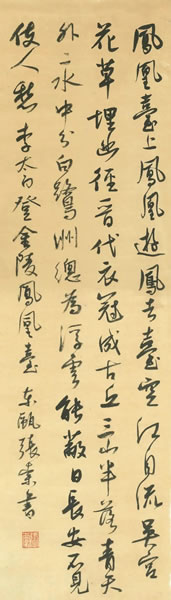 鳳凰臺上鳳凰遊鳳去臺空江自流吳宮
花草埋幽徑晉代衣冠成古丘三山半落青天
外二水中分白鷺洲總為浮雲能蔽日長安不見
使人愁 李太白登金陵鳳凰臺 東甌張索書